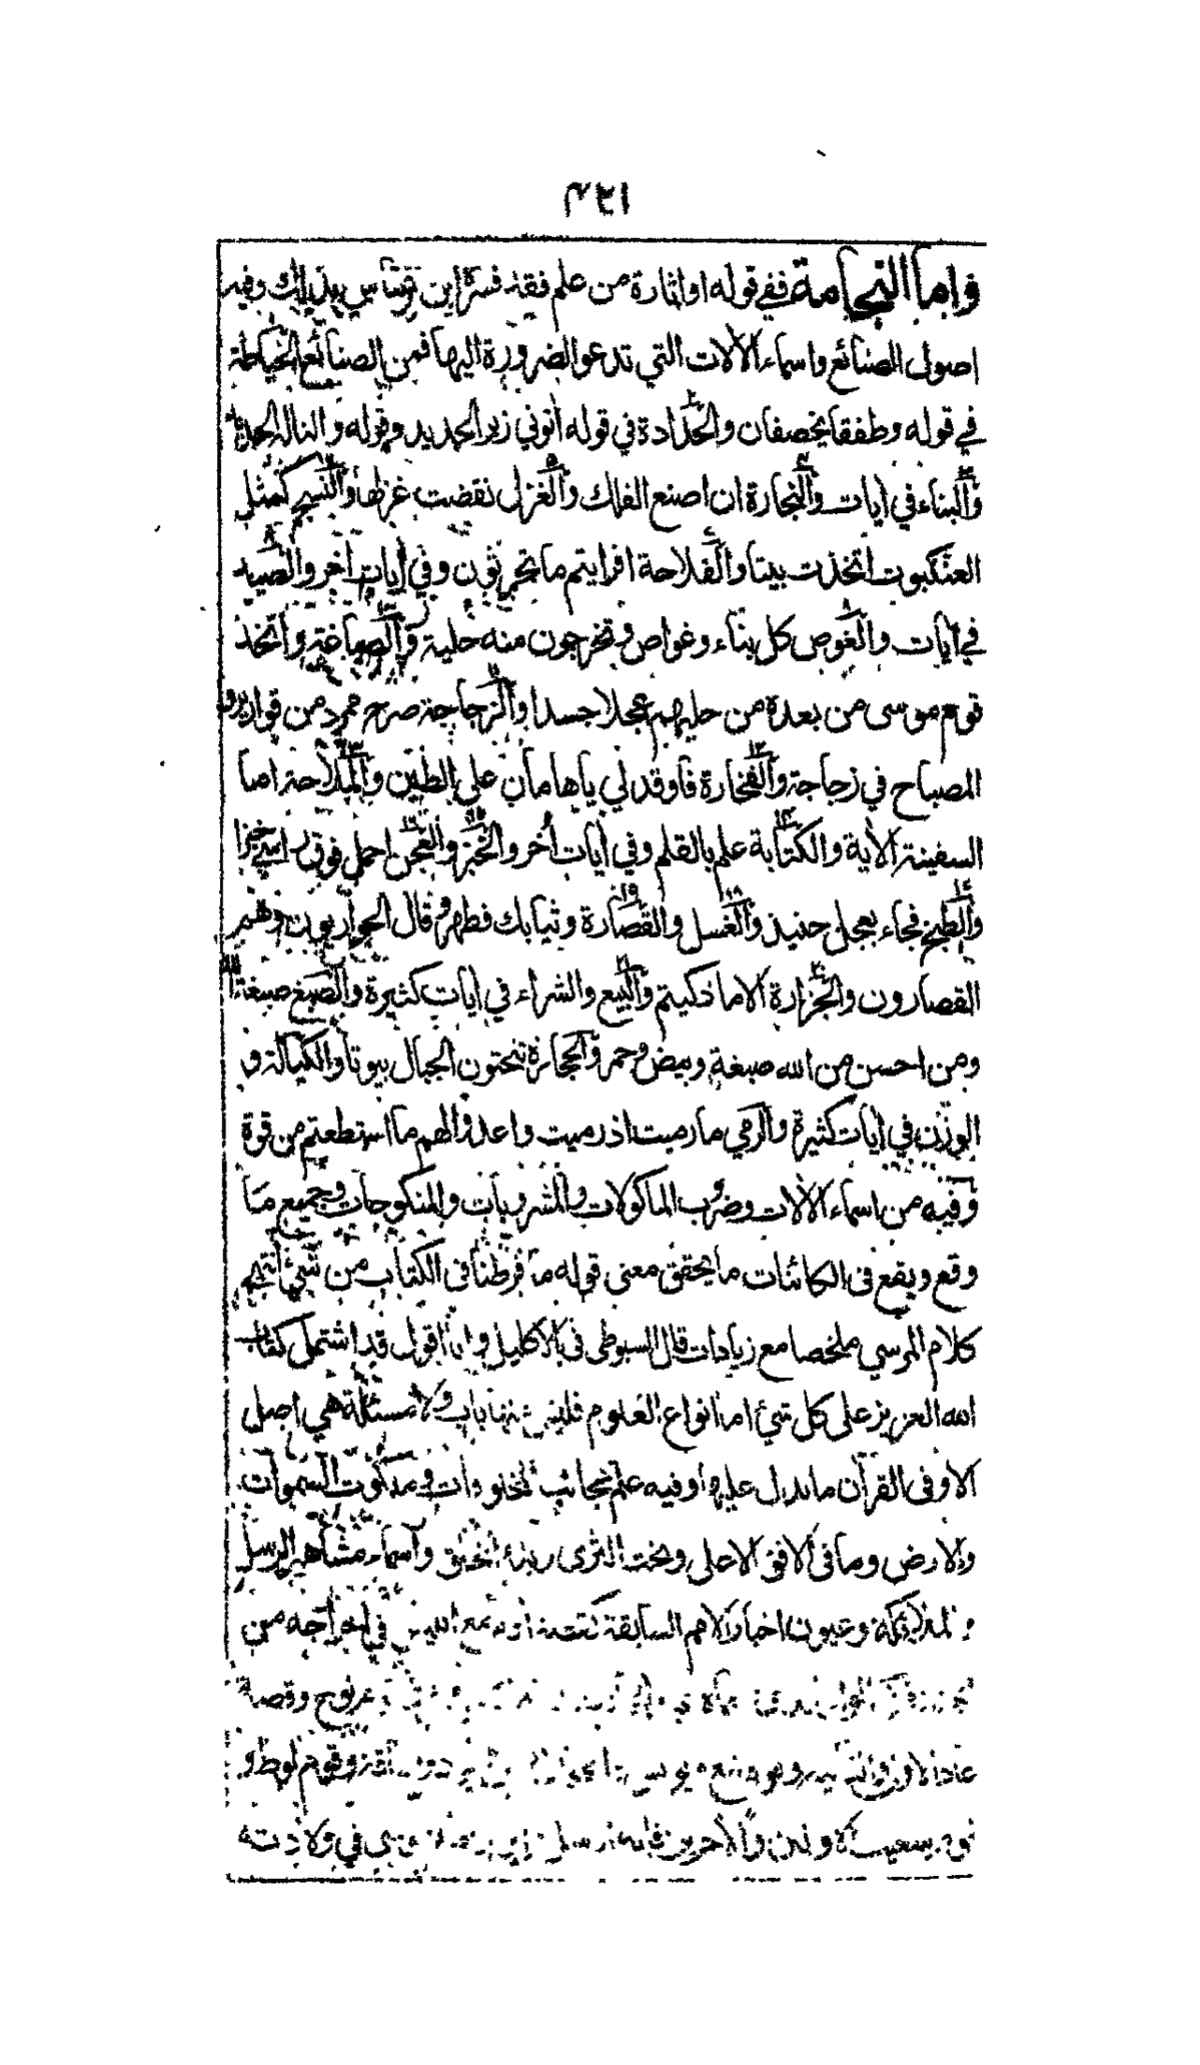 ٤٢١
واما النجامة ففي قوله او اثارة من علم فقد فسره ابن عباس بذلك وفيه
اصول الصنائع واسماء الآلات التي تدعو الضرورة اليها فمن الصنائع الخياطة
في قوله وطفقا يخصفان والحدادة في قوله آتوني زبر الحديد وقوله والنا له الحديد
والبناء في آيات والنجارة ان اصنع الفلك والغزل نقضت غزلها والنسج كمثل
العنكبوت اتخذت بيتا والفلاحة افرايتم ما تحرثون وفي آيات أخر والصيد
في آيات والغوص كل بناء وغواص وتخرجون منه حلية والصياغة واتخذ
قوم موسى من بعده من حليهم عجلا جسدا والزجاجة صرح ممرد من قوارير و
المصباح في زجاجة والفخارة فأوقد لي ياهامان على الطين والملاحة اما
السفينة الآية والكتابة علم بالقلم وفي آيات أخر والخبز والعجن احمل فوق راسي خبزا
والطبخ فجاء بعجل حنيذ والغسل والقصارة وثيابك فطهر وقال الحواريون وهم
القصارون والجزارة الا ما ذكيتم والبيع والشراء في آيات كثيرة والصبغ صبغة الله
ومن احسن من الله صبغة وبيض وحمر والحجارة تنحتون الجبال بيوتا والكيالة و
الوزن في آيات كثيرة والرمي ما رميت اذ رميت واعدوا لهم ما استطعتم من قوة
وفيه من اسماء الآلات وضروب الماكولات والمشروبات والمنكوحات وجميع ما
وقع ويقع في الكائنات ما يحقق معنى قوله ما فرطنا في الكتاب من شيء انتهى
كلام المرسي ملخصا مع زيادات قال السيوطي في الاكليل وانا اقول قد اشتمل كتاب
الله العزيز على كل شيء اما انواع العلوم فليس منها باب ولا مسئلة هي اصل
الا وفي القرآن ما يدل عليها وفيه علم عجائب المخلوقات وملكوت السموات
والارض وما في الافق الاعلى وتحت الثرى وبدء الخلق واسماء مشاهير الرسل
والملائكة وعيون اخبار الامم السابقة كقصة آدم مع ابليس في اخراجه من
نوح وقصة
عاد وقوم لوط و
في ولادته